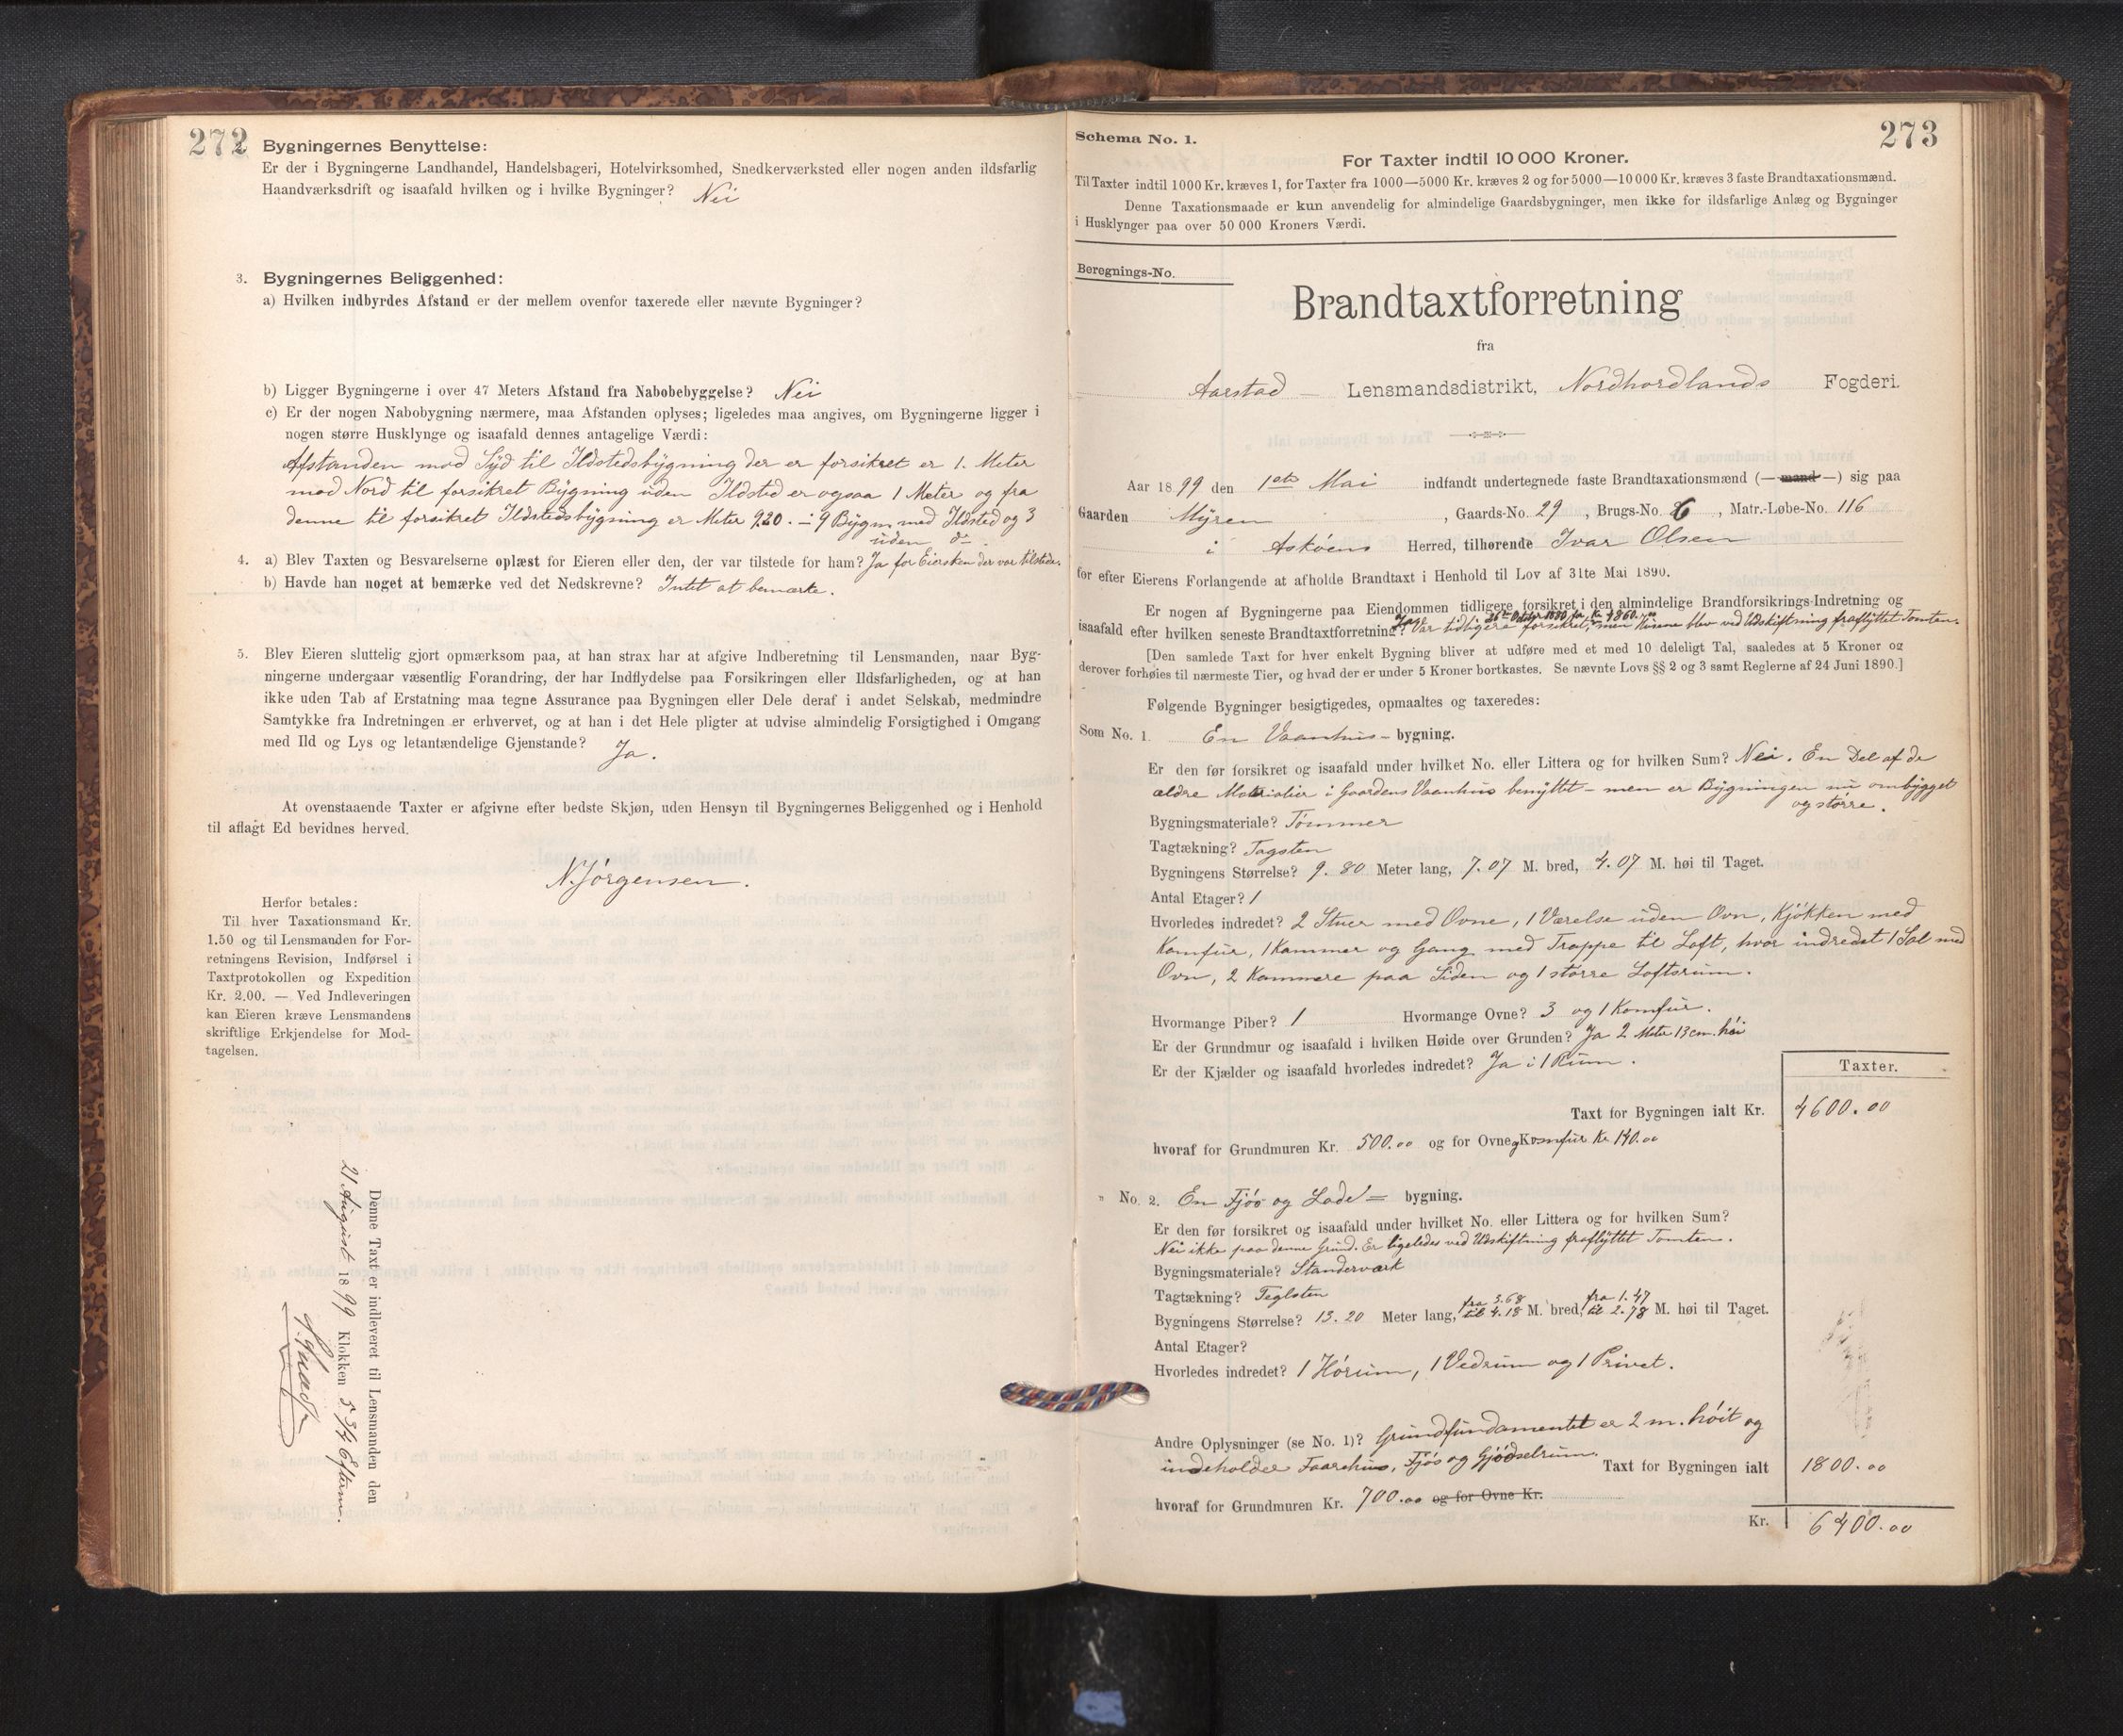 272
Bygningernes Benyttelse:
Er der i Bygningerne Landhandel, Handelsbageri, Hotelvirksomhed, Snedkerværksted eller nogen anden ildsfarlig
Haandværksdrift og isaafald hvilken og i hvilke Bygninger? Nei
3. Bygningernes Beliggenhed:
a) Hvilken indbyrdes Afstand er der mellem ovenfor taxerede eller nævnte Bygninger?
b) Ligger Bygningerne i over 47 Meters Afstand fra Nabobebyggelse? Nei
c) Er der nogen Nabobygning nærmere, maa Afstanden oplyses; ligeledes maa angives, om Bygningerne ligger i
nogen større Husklynge og isaafald dennes antagelige Værdi:
Afstanden mod Syd til Ildstedsbygning der er forsikret er 1. Meter
mod Nord til forsikret Bygning uden Ildsted er ogsaa 1 Meter og fra
denne til forsikret Ildstedsbygning er Meter 9.20. - 9 Bygn. med Ildsted og 3
uden do
4. a) Blev Taxten og Besvarelserne oplæst for Eieren eller den, der var tilstede for ham? Ja for Eiersken der var tilstede.
b) Havde han noget at bemærke ved det Nedskrevne? Intet at bemærke.
5. Blev Eieren sluttelig gjort opmærksom paa, at han strax har at afgive Indberetning til Lensmanden, naar Byg-
ningerne undergaar væsentlig Forandring, der har Indflydelse paa Forsikringen eller Ildsfarligheden, og at han
ikke uden Tab af Erstatning maa tegne Assurance paa Bygningen eller Dele deraf i andet Selskab, medmindre
Samtykke fra Indretningen er erhvervet, og at han i det Hele pligter at udvise almindelig Forsigtighed i Omgang
med Ild og Lys og letantændelige Gjenstande? Ja.
At ovenstaaende Taxter er afgivne efter bedste Skjøn, uden Hensyn til Bygningernes Beliggenhed og i Henhold
til aflagt Ed bevidnes herved.
N. Jörgensen.
Herfor betales:
Til hver Taxationsmand Kr.
1.50 og til Lensmanden for For-
retningens Revision, Indførsel i
Taxtprotokollen og Expedition
Kr. 2.00. — Ved Indleveringen
kan Eieren kræve Lensmandens
skriftlige Erkjendelse for Mod-
tagelsen.
Denne Taxt er indleveret til Lensmanden den
21 August 1899 Klokken 5 3/4 Efterm.
273
Schema No. 1.
For Taxter indtil 10 000 Kroner.
Til Taxter indtil 1000 Kr. kræves 1, for Taxter fra 1000—5000 Kr. kræves 2 og for 5000—10 000 Kr. kræves 3 faste Brandtaxationsmænd.
Denne Taxationsmaade er kun anvendelig for almindelige Gaardsbygninger, men ikke for ildsfarlige Anlæg og Bygninger
i Husklynger paa over 50 000 Kroners Værdi.
Beregnings-No.
Brandtaxtforretning
fra
Aarstad Lensmandsdistrikt, Nordhordlands Fogderi.
Aar 1899 den 1ste Mai indfandt undertegnede faste Brandtaxationsmænd (— mand —) sig paa
Gaarden Myren, Gaards-No. 29, Brugs-No. 6, Matr.-Løbe-No. 116
i Asköens Herred, tilhørende Ivar Olsen
for efter Eierens Forlangende at afholde Brandtaxt i Henhold til Lov af 31te Mai 1890.
Er nogen af Bygningerne paa Eiendommen tidligere forsikret i den almindelige Brandforsikrings-Indretning og
26de Oktbr 1880 for Kr 4860.00
isaafald efter hvilken seneste Brandtaxtforretning? Var tidligere forsikret, men Husene blev ved Udskiftning fraflyttet Tomten.
[Den samlede Taxt for hver enkelt Bygning bliver at udføre med et med 10 deleligt Tal, saaledes at 5 Kroner og
derover forhøies til nærmeste Tier, og hvad der er under 5 Kroner bortkastes. Se nævnte Lovs §§ 2 og 3 samt Reglerne af 24 Juni 1890.]
Følgende Bygninger besigtigedes, opmaaltes og taxeredes:
Som No. 1. En Vaanhus-bygning.
Er den før forsikret og isaafald under hvilket No. eller Littera og for hvilken Sum? Nei. En Del af de
ældre Materialier i Gaardens Vaanhus benyttet - men er Bygningen nu ombygget
og större.
Bygningsmateriale? Tömmer
Tagtækning? Tagsten
Bygningens Størrelse? 9.80 Meter lang, 7.07 M. bred, 4.07 M. høi til Taget.
Antal Etager? 1
Hvorledes indredet? 2 Stuer med Ovne, 1 Værelse uden Ovn, Kjökken med
Komfur, 1 Kammer og Gang med Trappe til Loft, hvor indredet 1 Sal med
Ovn, 2 Kammere paa Siden og 1 större Loftsrum.
Hvormange Piber? 1 Hvormange Ovne? 3 og 1 Komfur.
Er der Grundmur og isaafald i hvilken Høide over Grunden? Ja 2 Meter 13 cm. höi
Er der Kjælder og isaafald hvorledes indredet? Ja i 1 Rum.
Taxter.
Taxt for Bygningen ialt Kr. 4600.00
hvoraf for Grundmuren Kr. 500.00 og for Ovne og Komfur Kr 140.00
" No. 2. En Fjös og Lade = bygning.
Er den før forsikret og isaafald under hvilket No. eller Littera og for hvilken Sum?
Nei ikke paa denne Grund. Er ligeledes ved Udskiftning fraflyttet Tomten.
Bygningsmateriale? Standerværk
Tagtækning? Teglsten
Bygningens Størrelse? 13.20 Meter lang, fra 3.68 til 4.18 M. bred, fra 1.47 til 2.78 M. høi til Taget.
Antal Etager?
Hvorledes indredet? 1 Hörum, 1 Vedrum og 1 Privet.
Andre Oplysninger (se No. 1)? Grundfundamentet er 2 m. höit og
indeholder Faarehus, Fjös og Gjödselrum. Taxt for Bygningen ialt 1800.00
hvoraf for Grundmuren Kr. 700.00 og for Ovne Kr.
Kr. 6400.00